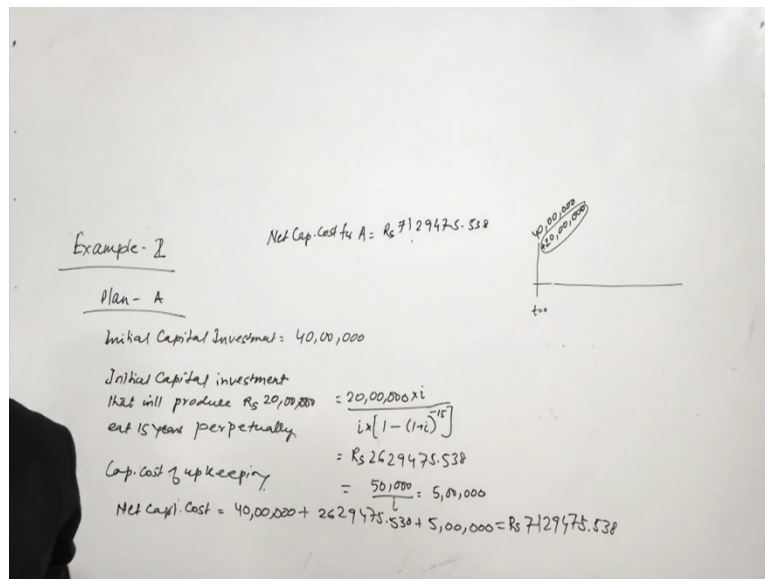 Net Cap. Cost for A = Rs 7129475.538
40,00,000
+20,00,000
Example-2
Plan - A
t=0
Initial Capital Investment = 40,00,000
Initial Capital investment
that will produce Rs 20,00,000 = 20,00,000×i
i×[1-(1+i)^-15]
eat 15 years perpetually
= Rs 2629475.538
Cap. Cost of upkeeping
= 50,000 = 5,00,000
i
Net Capl. Cost = 40,00,000 + 2629475.538 + 5,00,000 = Rs 7129475.538